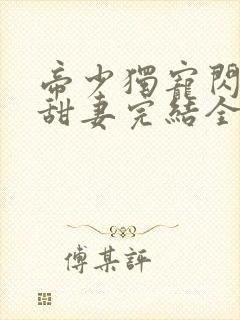 帝少獨寵閃
甜妻完結全
傅某評